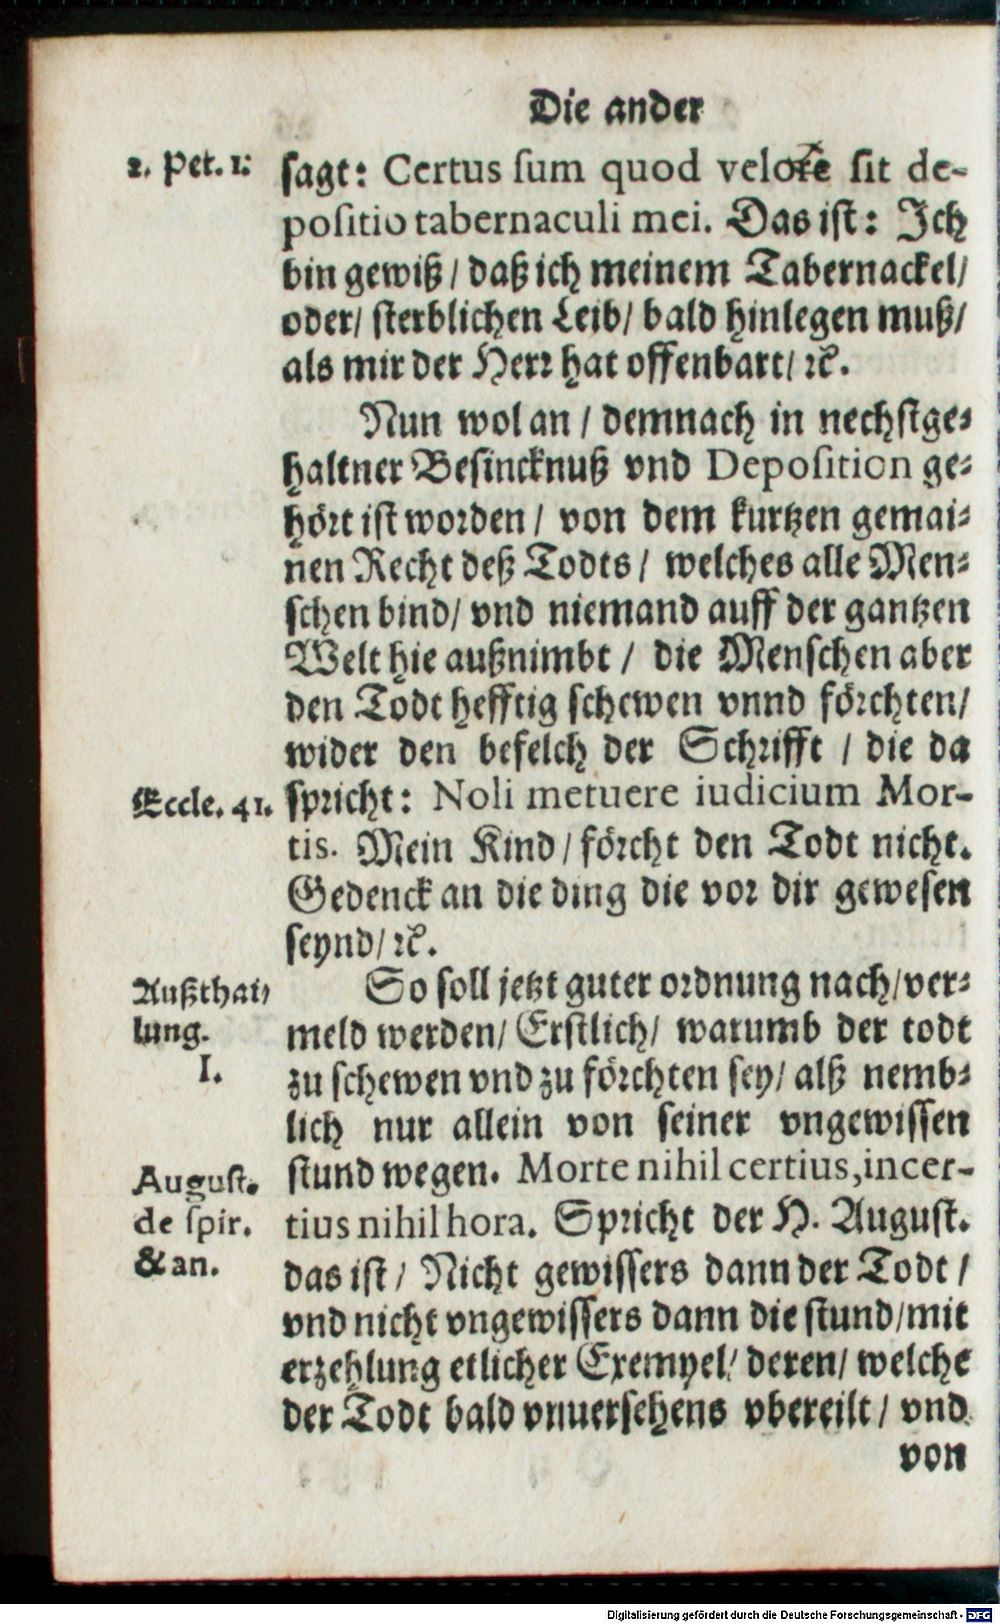 Die ander
2. Pet. 1.
sagt: Certus sum quod velox sit de-
positio tabernaculi mei. Das ist: Ich
bin gewiß / daß ich meinem Tabernackel/
oder/ sterblichen Leib/ bald hinlegen muß/
als mir der Herr hat offenbart/ ꝛc.
Nun wol an / demnach in nechstge-
haltner Besincknuß vnd Deposition ge-
hört ist worden / von dem kurtzen gemai-
nen Recht deß Todts / welches alle Men-
schen bind/ vnd niemand auff der gantzen
Welt hie außnimbt / die Menschen aber
den Todt hefftig schewen vnnd förchten/
wider den befelch der Schrifft / die da
Eccle. 41.
spricht: Noli metuere iudicium Mor-
tis. Mein Kind / förcht den Todt nicht.
Gedenck an die ding die vor dir gewesen
seynd/ ꝛc.
Außthai-
lung.
I.
So soll jetzt guter ordnung nach/ ver-
meld werden/ Erstlich/ warumb der todt
zu schewen vnd zu förchten sey/ alß nemb-
lich nur allein von seiner vngewissen
August.
de spir.
& an.
stund wegen. Morte nihil certius, incer-
tius nihil hora. Spricht der H. August.
das ist / Nicht gewissers dann der Todt /
vnd nicht vngewissers dann die stund/ mit
erzehlung etlicher Exempel/ deren/ welche
der Todt bald vnuersehens vbereilt / vnd
von
Digitalisierung gefördert durch die Deutsche Forschungsgemeinschaft - DFG